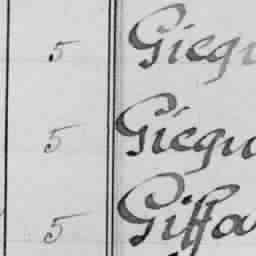 5 Giegu
5 Giegu
5 Giffa